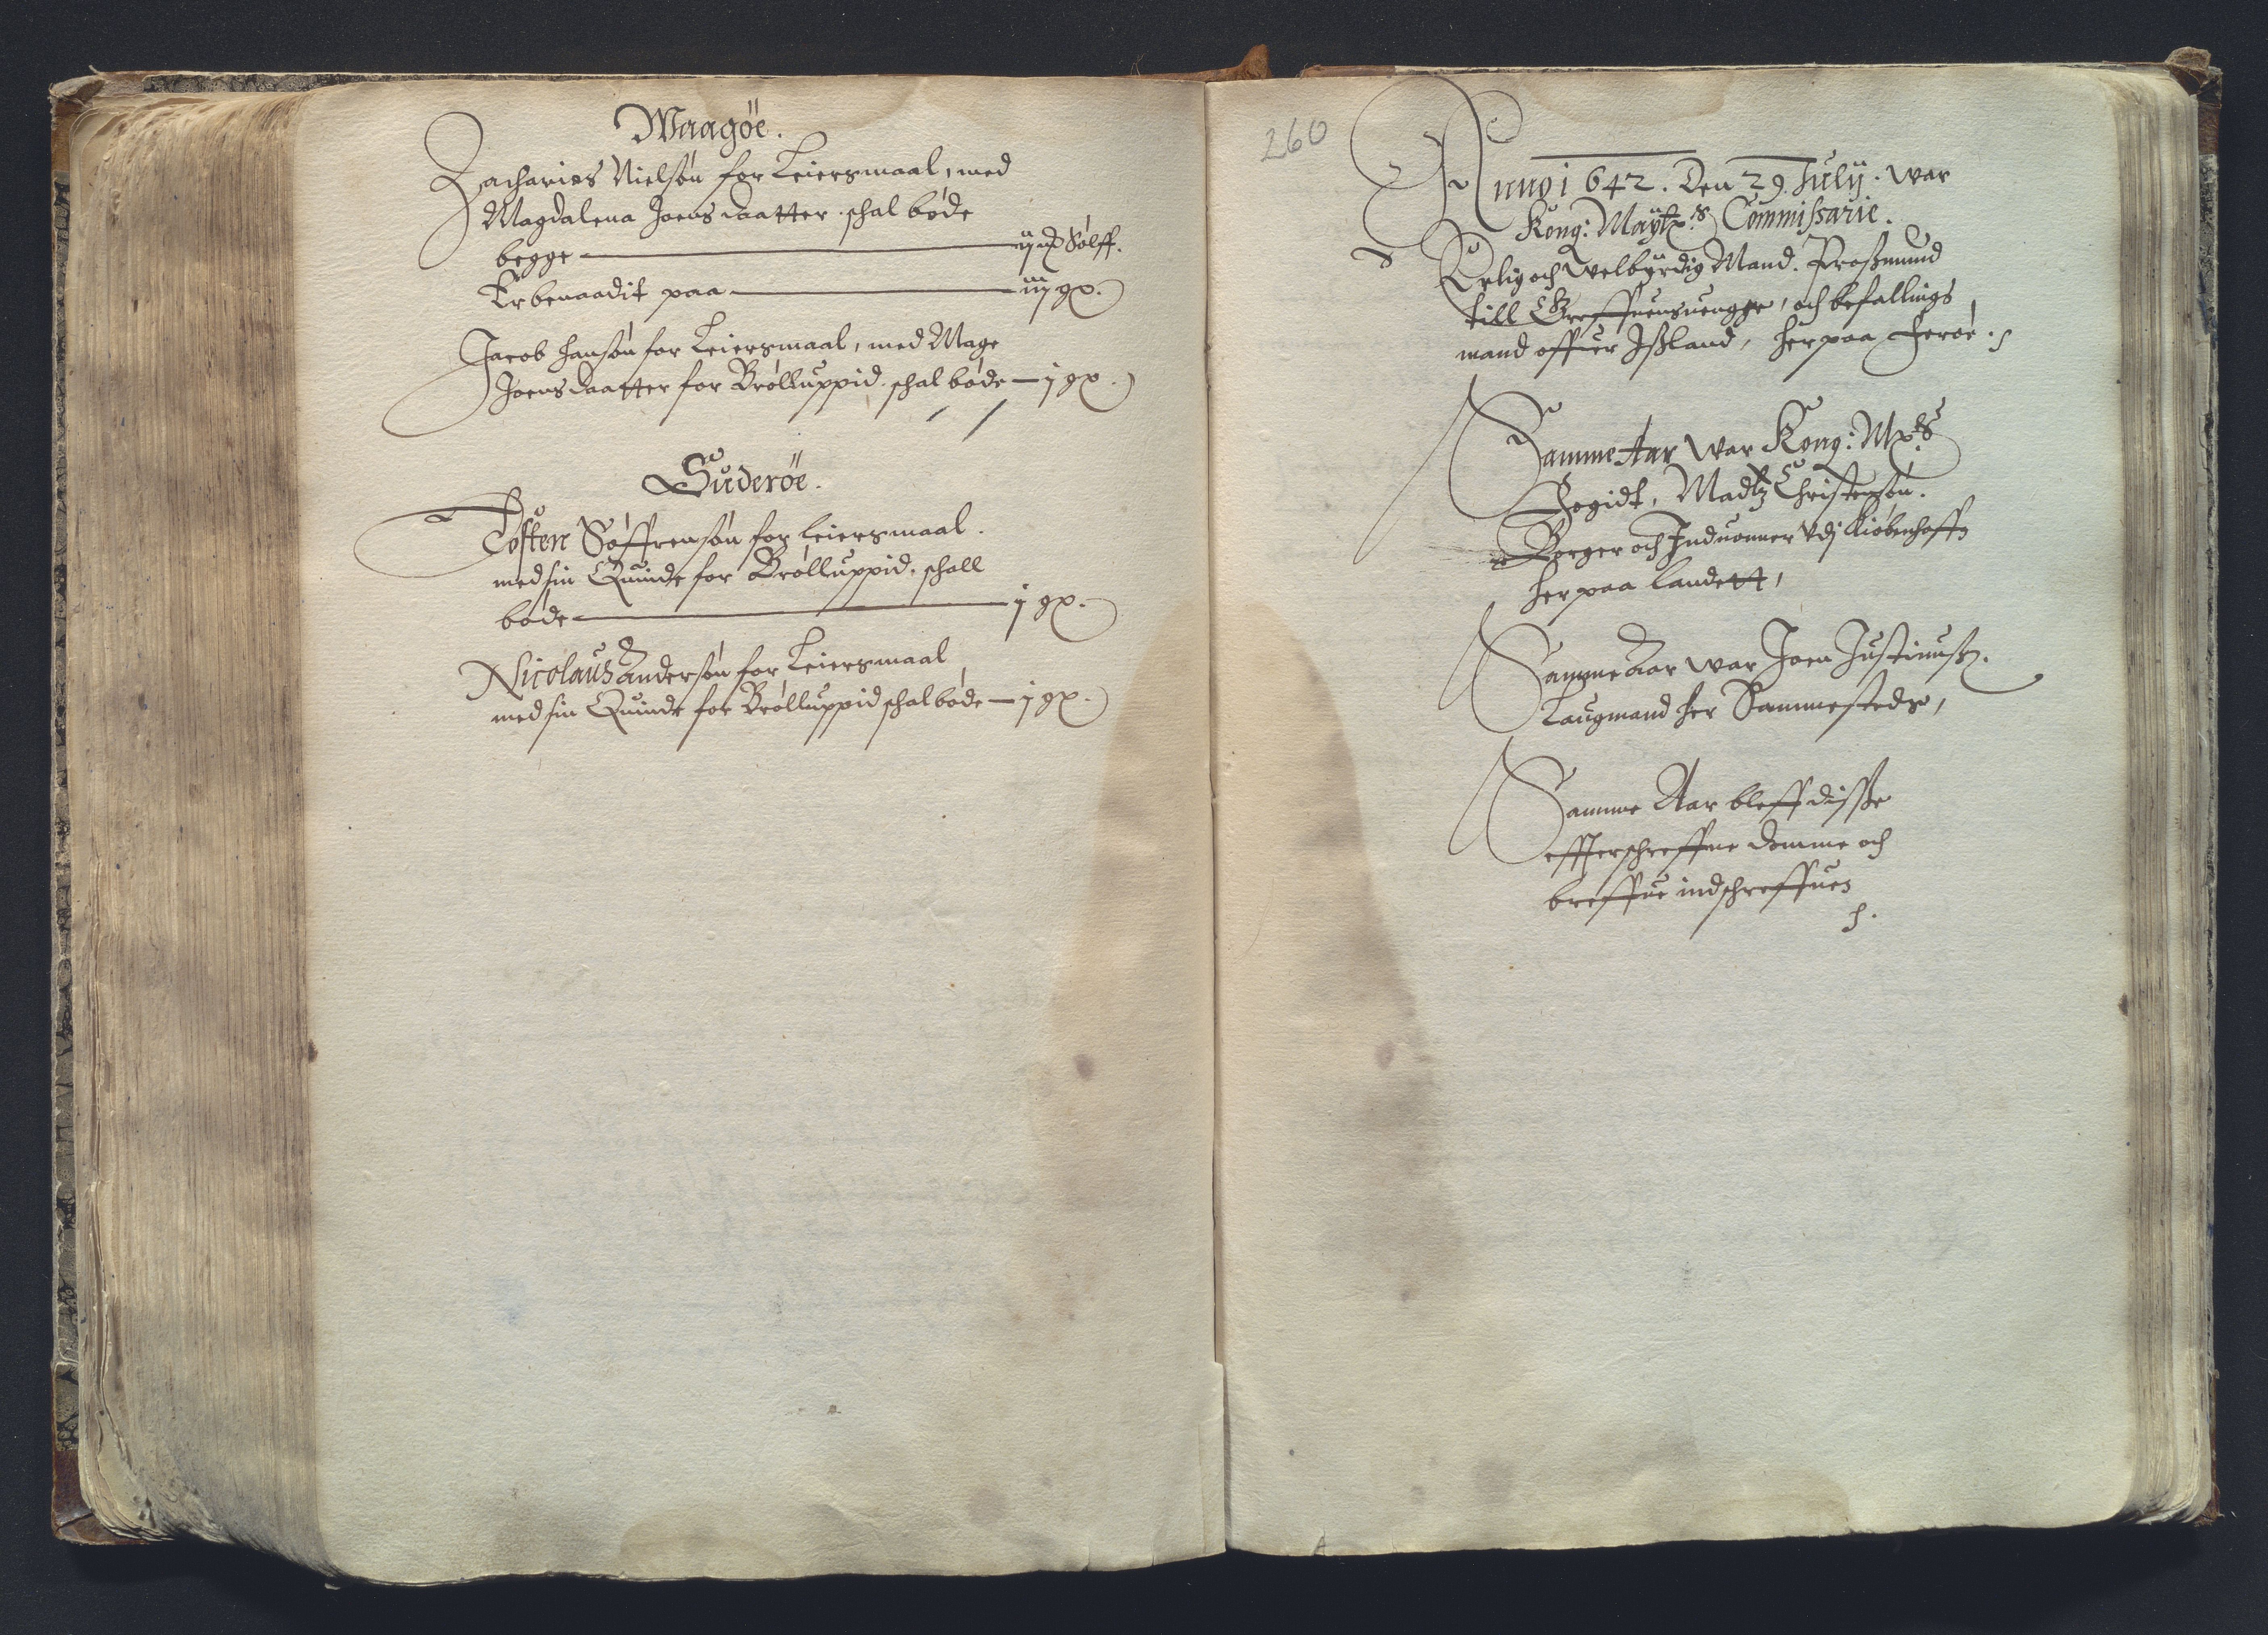 Waagöe.
Zacharies Nielsøn for Leiersmaal, med
Magdalena Joensdaatter. schal bøde
begge — Sølff.
Er benaadit paa — iiij gx.
Jacob Hansøn for Leiersmaal, med Mage
Joensdaatter for Brølluppid. schal bøde — j gx.
Suderöe.
Tosten Søffrensøn for leiersmaal.
med sin Quinde for Brølluppid. schall
bøde — j gx.
Nicolaus Andersøn for Leiersmaal
med sin Quinde for Brølluppid schal bøde — j gx.
260
Anno 1642. Den 29. Julij. war
Kong: Maytz. Commissarie.
Erlig och Welbyrdig Mand. Proßmund
till , och befallings
mand offuer Ißland, her paa Feröe.
Samme Aar war Kong: Mxs
Fogidt, Madtz Christensøn.
Borger och Induonner Vdj Kiøbenhaffn
her paa landett,
Samme Aar war Joen Justinuß.
Laugmand her Sammesteds,
Samme Aar bleff diße
effterschreffne Domme och
breffue indschreffuen